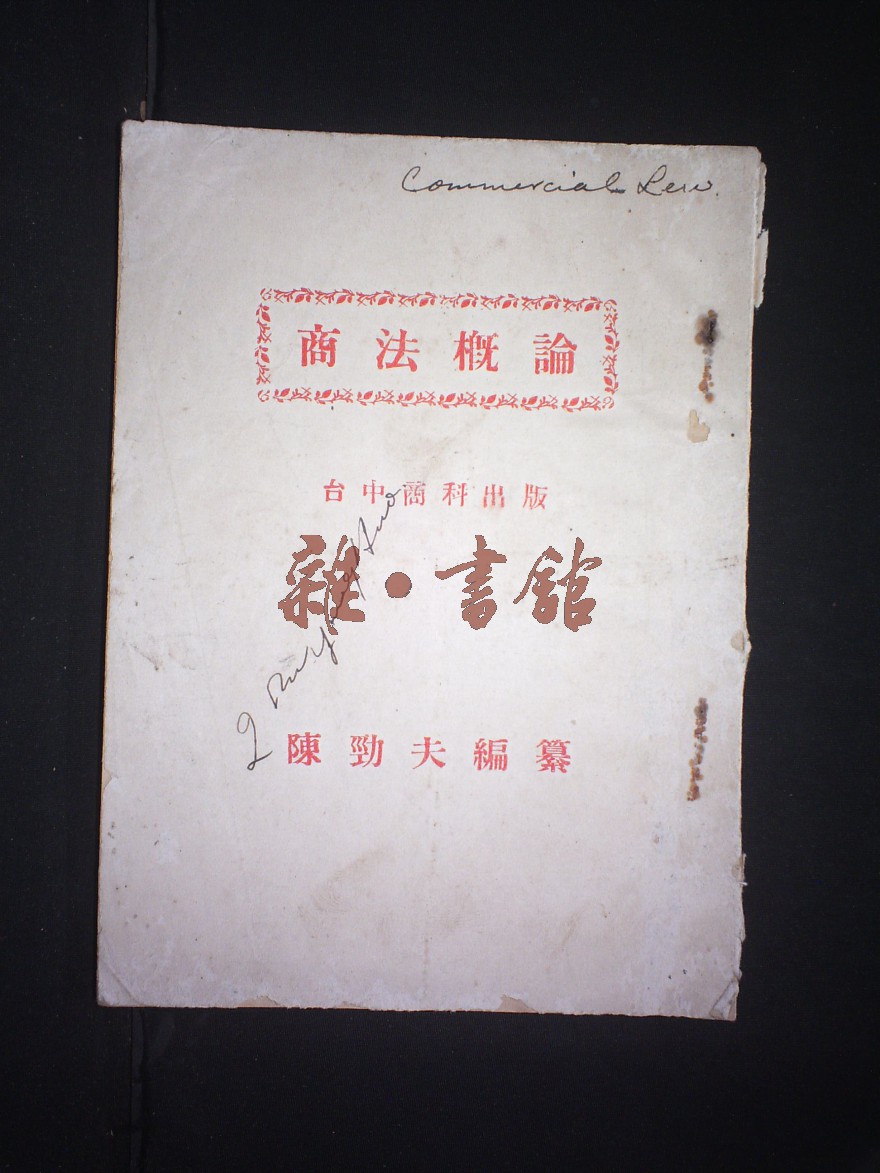 Commercial Law.
商法概論
台中商科出版
雜·書館
陳勁夫編纂